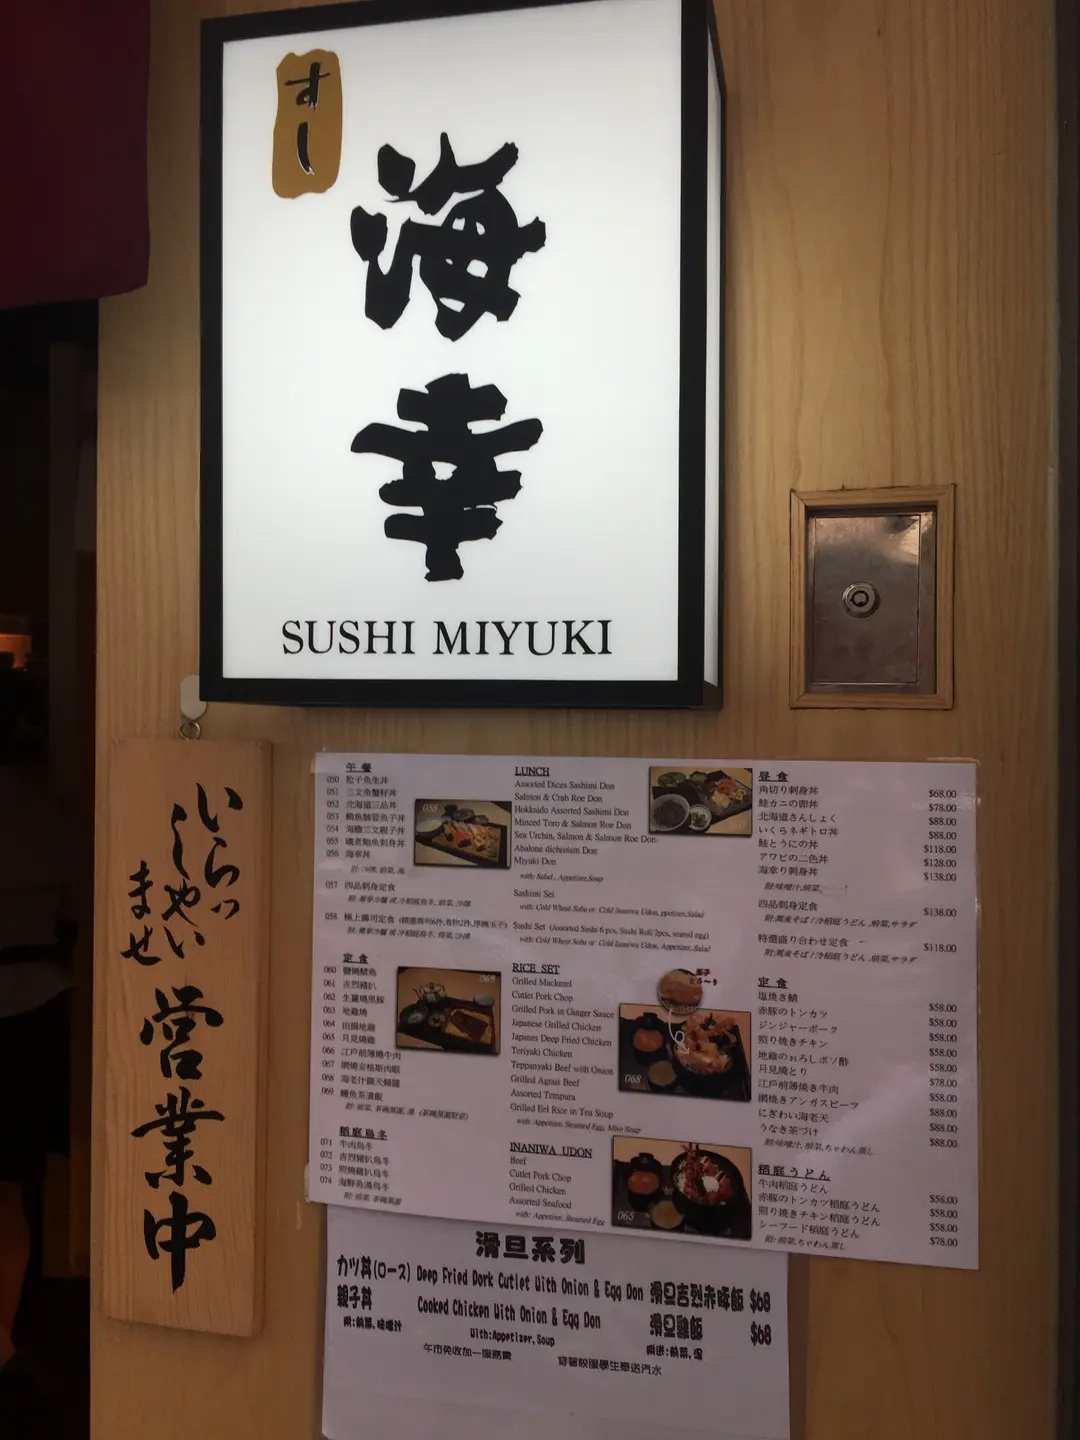 すし
海幸
SUSHI MIYUKI
いらっ
しゃい
ませ
営業中
午餐
050 粒子魚生丼
051 三文魚蟹籽丼
052 北海道三品丼
053
054 海膽三文親子丼
055
056 海幸丼
057 四品刺身定食
058 極上壽司定食
定食
060 鹽燒鯖魚
061 吉烈豬扒
062 生薑燒黑豚
063 地雞燒
064
065 月見燒雞
066 江戶前薄燒牛肉
067 網燒安格斯肉眼
068
069 鰻魚茶漬飯
稻庭烏冬
071 牛肉烏冬
072 吉烈豬扒烏冬
073 照燒雞扒烏冬
074 海鮮魚湯烏冬
058
LUNCH
Assorted Dices Sashimi Don
Salmon & Crab Roe Don
Hokkaido Assorted Sashimi Don
Minced Toro & Salmon Roe Don
Sea Urchin, Salmon & Salmon Roe Don
Abalone dichroism Don
Miyuki Don
with: Salad, Appetizer,Soup
Sashimi Set
with: Cold Wheat Soba or Cold Inaniwa Udon, ppetizer,Salad
Sushi Set (Assorted Sushi 6 pcs, Sushi Roll 2pcs, seared egg)
with: Cold Wheat Soba or Cold Inaniwa Udon, Appetizer, Salad
RICE SET
Grilled Mackerel
Cutlet Pork Chop
Grilled Pork in Ginger Sauce
Japanese Grilled Chicken
Japanes Deep Fried Chicken
Teriyaki Chicken
Teppanyaki Beef with Onion
Grilled Agnus Beef
Assorted Tempura
Grilled Eel Rice in Tea Soup
with: Appetizer, Steamed Egg, Miso Soup
INANIWA UDON
Beef
Cutlet Pork Chop
Grilled Chicken
Assorted Seafood
with: Appetizer, Steamed Egg
069
068
065
昼食
角切り刺身丼 $68.00
鮭カニの卵丼 $78.00
北海道さんしょく $88.00
いくらネギトロ丼 $88.00
鮭とうにの丼 $118.00
アワビの二色丼 $128.00
海幸り刺身丼 $138.00
附:味噌汁,前菜
四品刺身定食 $138.00
附:蕎麦そば/冷稲庭うどん,前菜,サラダ
特選盛り合わせ定食 $118.00
附:蕎麦そば/冷稲庭うどん,前菜,サラダ
定食
塩焼き鯖 $58.00
赤豚のトンカツ $58.00
ジンジャーポーク $58.00
照り焼きチキン $58.00
地雞のおろしポン酢 $58.00
月見焼とり $58.00
江戸前薄焼き牛肉 $78.00
網焼きアンガスビーフ $88.00
にぎわい海老天 $88.00
うなき茶づけ $88.00
附:味噌汁,前菜,ちゃわん蒸し
稻庭うどん
牛肉稲庭うどん $58.00
赤豚のトンカツ稲庭うどん $58.00
照り焼きチキン稲庭うどん $58.00
シーフード稲庭うどん $78.00
附:前菜,ちゃわん蒸し
滑旦系列
カツ丼(ロース) Deep Fried Dork Cutlet With Onion & Egg Don 滑旦吉烈赤豚飯 $68
親子丼 Cooked Chicken With Onion & Egg Don 滑旦雞飯 $68
附:前菜,味噌汁 With:Appetizer,Soup 附送:前菜,湯
午市免收加一服務費 穿著校服學生奉送汽水